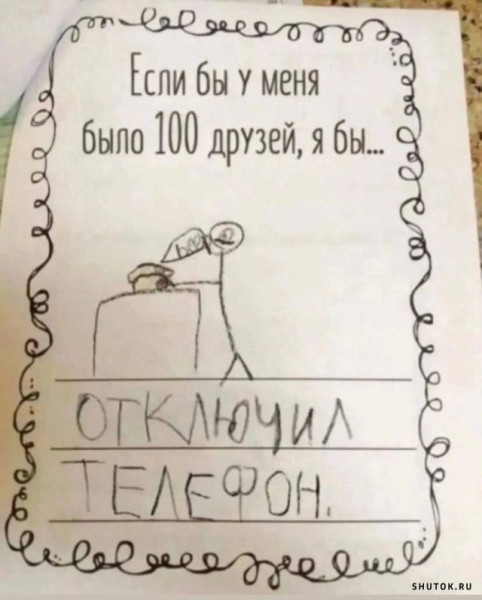 Если бы у меня
было 100 друзей, я бы...
ОТКЛЮЧИЛ
ТЕЛЕФОН.
SHUTOK.RU